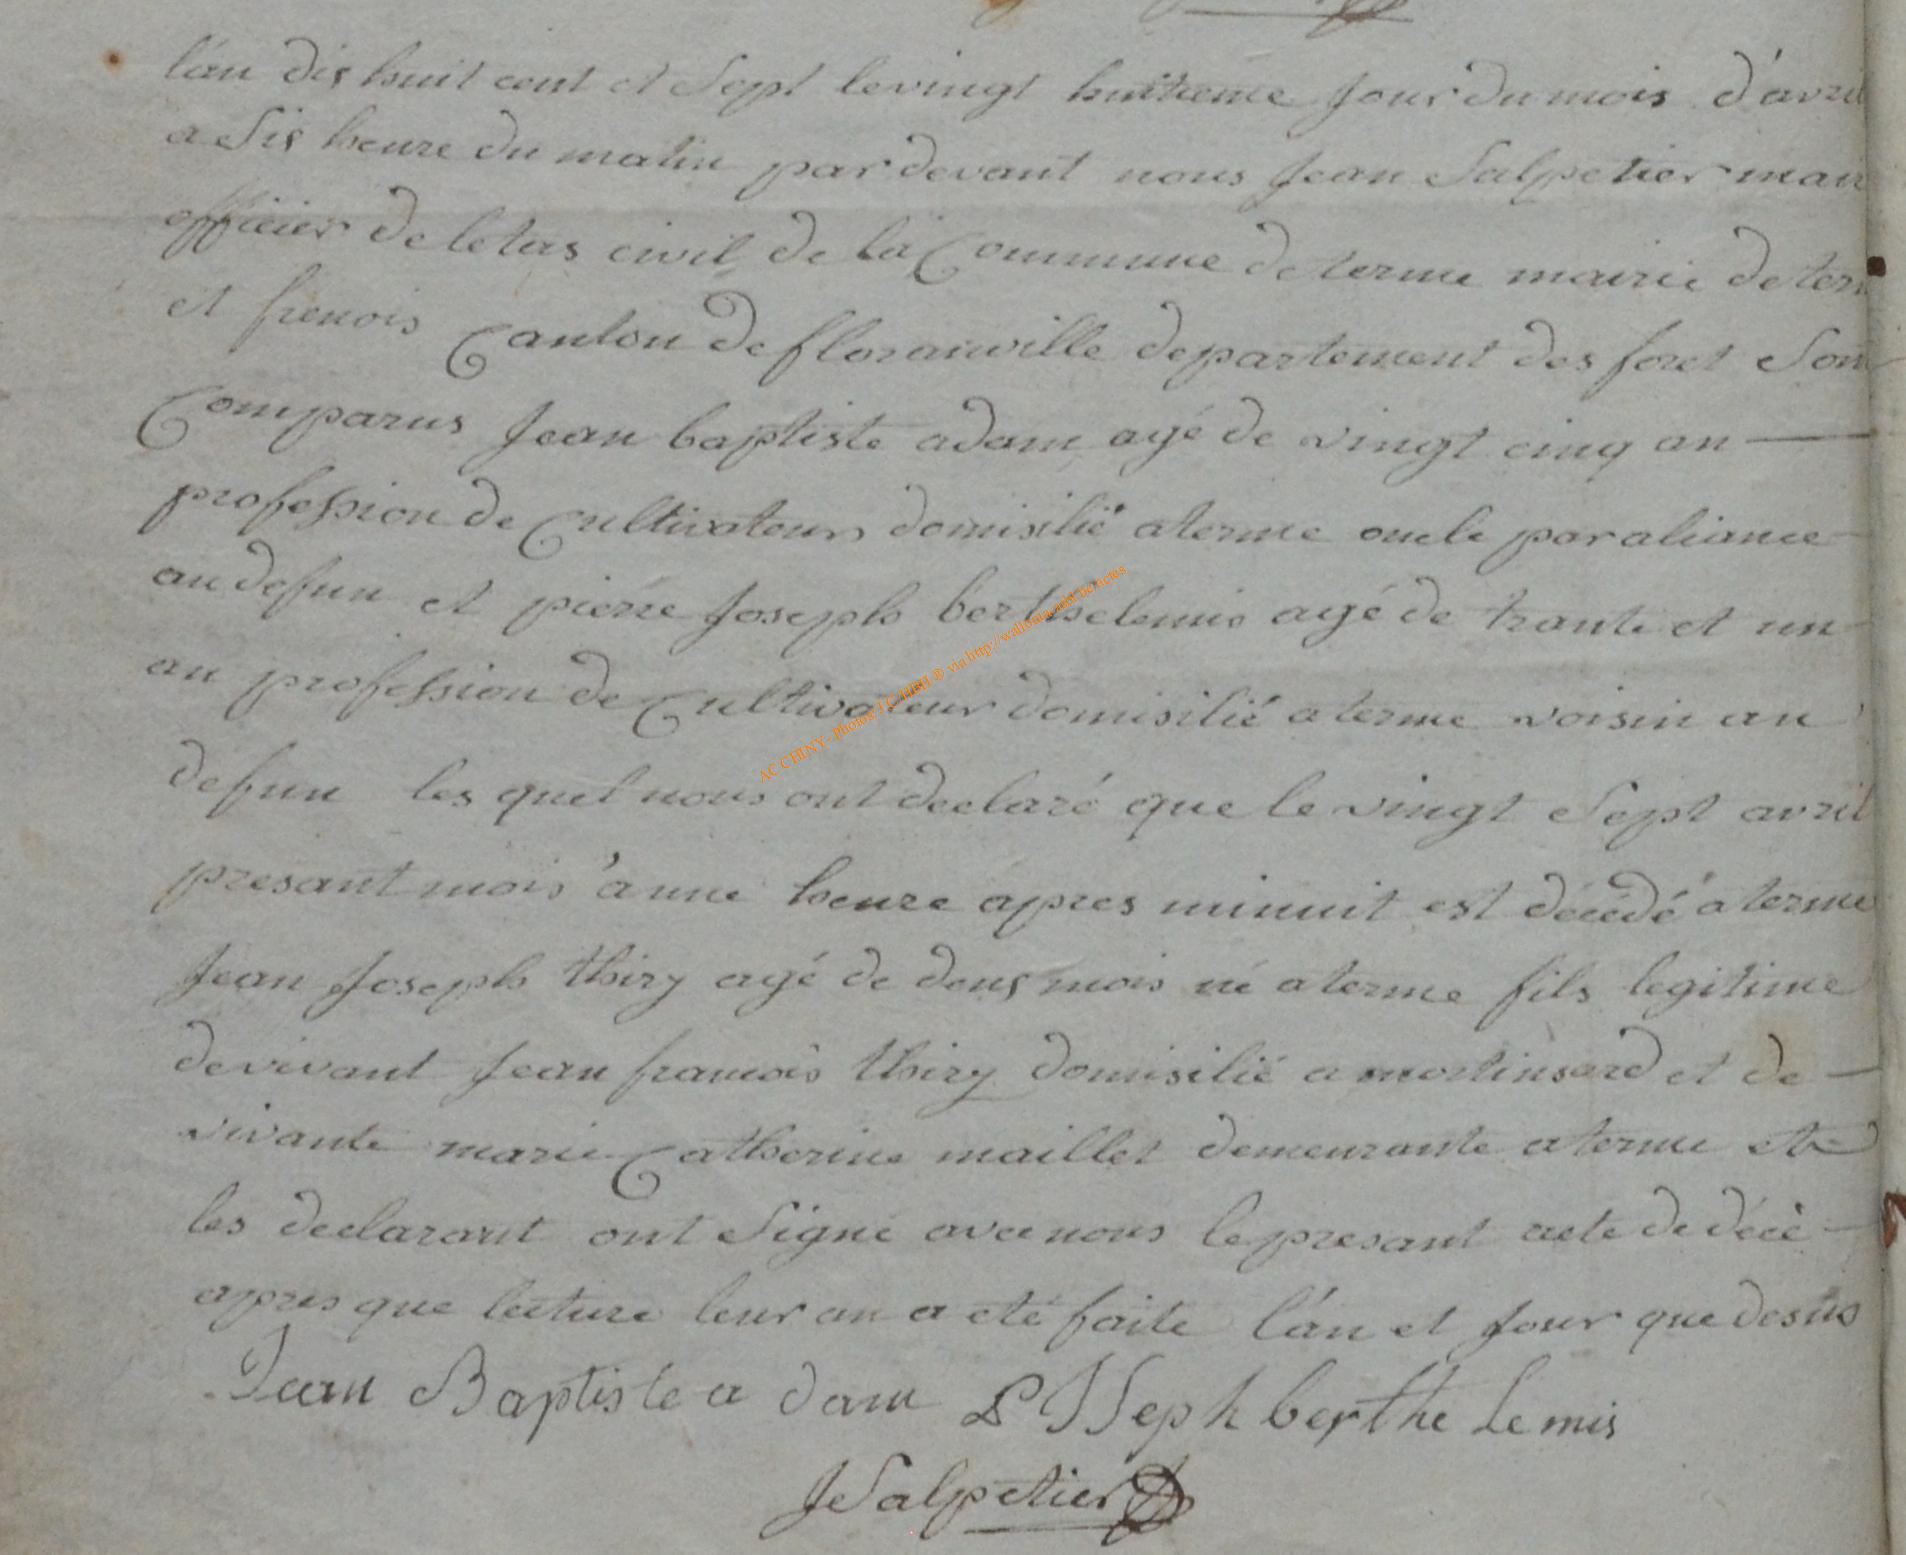 l'an dis huit cent et Sept le vingt huitieme Jour du mois d'avril
a Sis heure du matin par devant nous Jean Salpetier mair
officier de letas civil de la Commune de terme mairie de term
et frenois Canton de floranville departement des foret Son
Comparus Jean baptiste adam agé de vingt cinq an
profession de Cultivateur domisilié a terme oncle par aliance
au defun et pierre Joseph berthelemie agé de trante et un
an profession de Cultivateur domisilié a terme voisin au
defun les quel nous ont declaré que le vingt Sept avril
presant mois a une heure apres minuit est décédé a terme
Jean Joseph thiry agé de deus mois né a terme fils legitime
de vivant Jean francois thiry domisilié a mortinsard et de
vivante marie Catherine maillet demeurante a terme et
les declarant ont Signé avec nous le presant acte de décè
apres que lecture leur an a eté faite l'an et Jour que desus
Jean Baptiste a dam P JSeph berthe Lemis
JSalpetier
AC CHINY - photos via http://